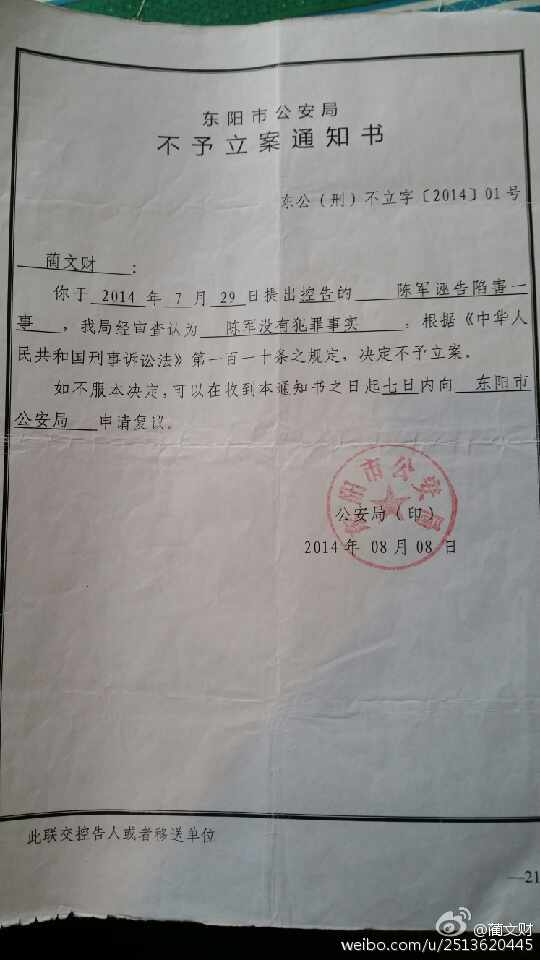 东阳市公安局
不予立案通知书
东公（刑）不立字〔2014〕01号
蔺文财：
你于 2014 年 7 月 29 日提出控告的 陈军诬告陷害一
事，我局经审查认为 陈军没有犯罪事实，根据《中华人
民共和国刑事诉讼法》第一百一十条之规定，决定不予立案。
如不服本决定，可以在收到本通知书之日起七日内向 东阳市
公安局 申请复议。
东阳市公安局
公安局（印）
2014年 08月08日
此联交控告人或者移送单位
—21
@蔺文财
weibo.com/u/2513620445